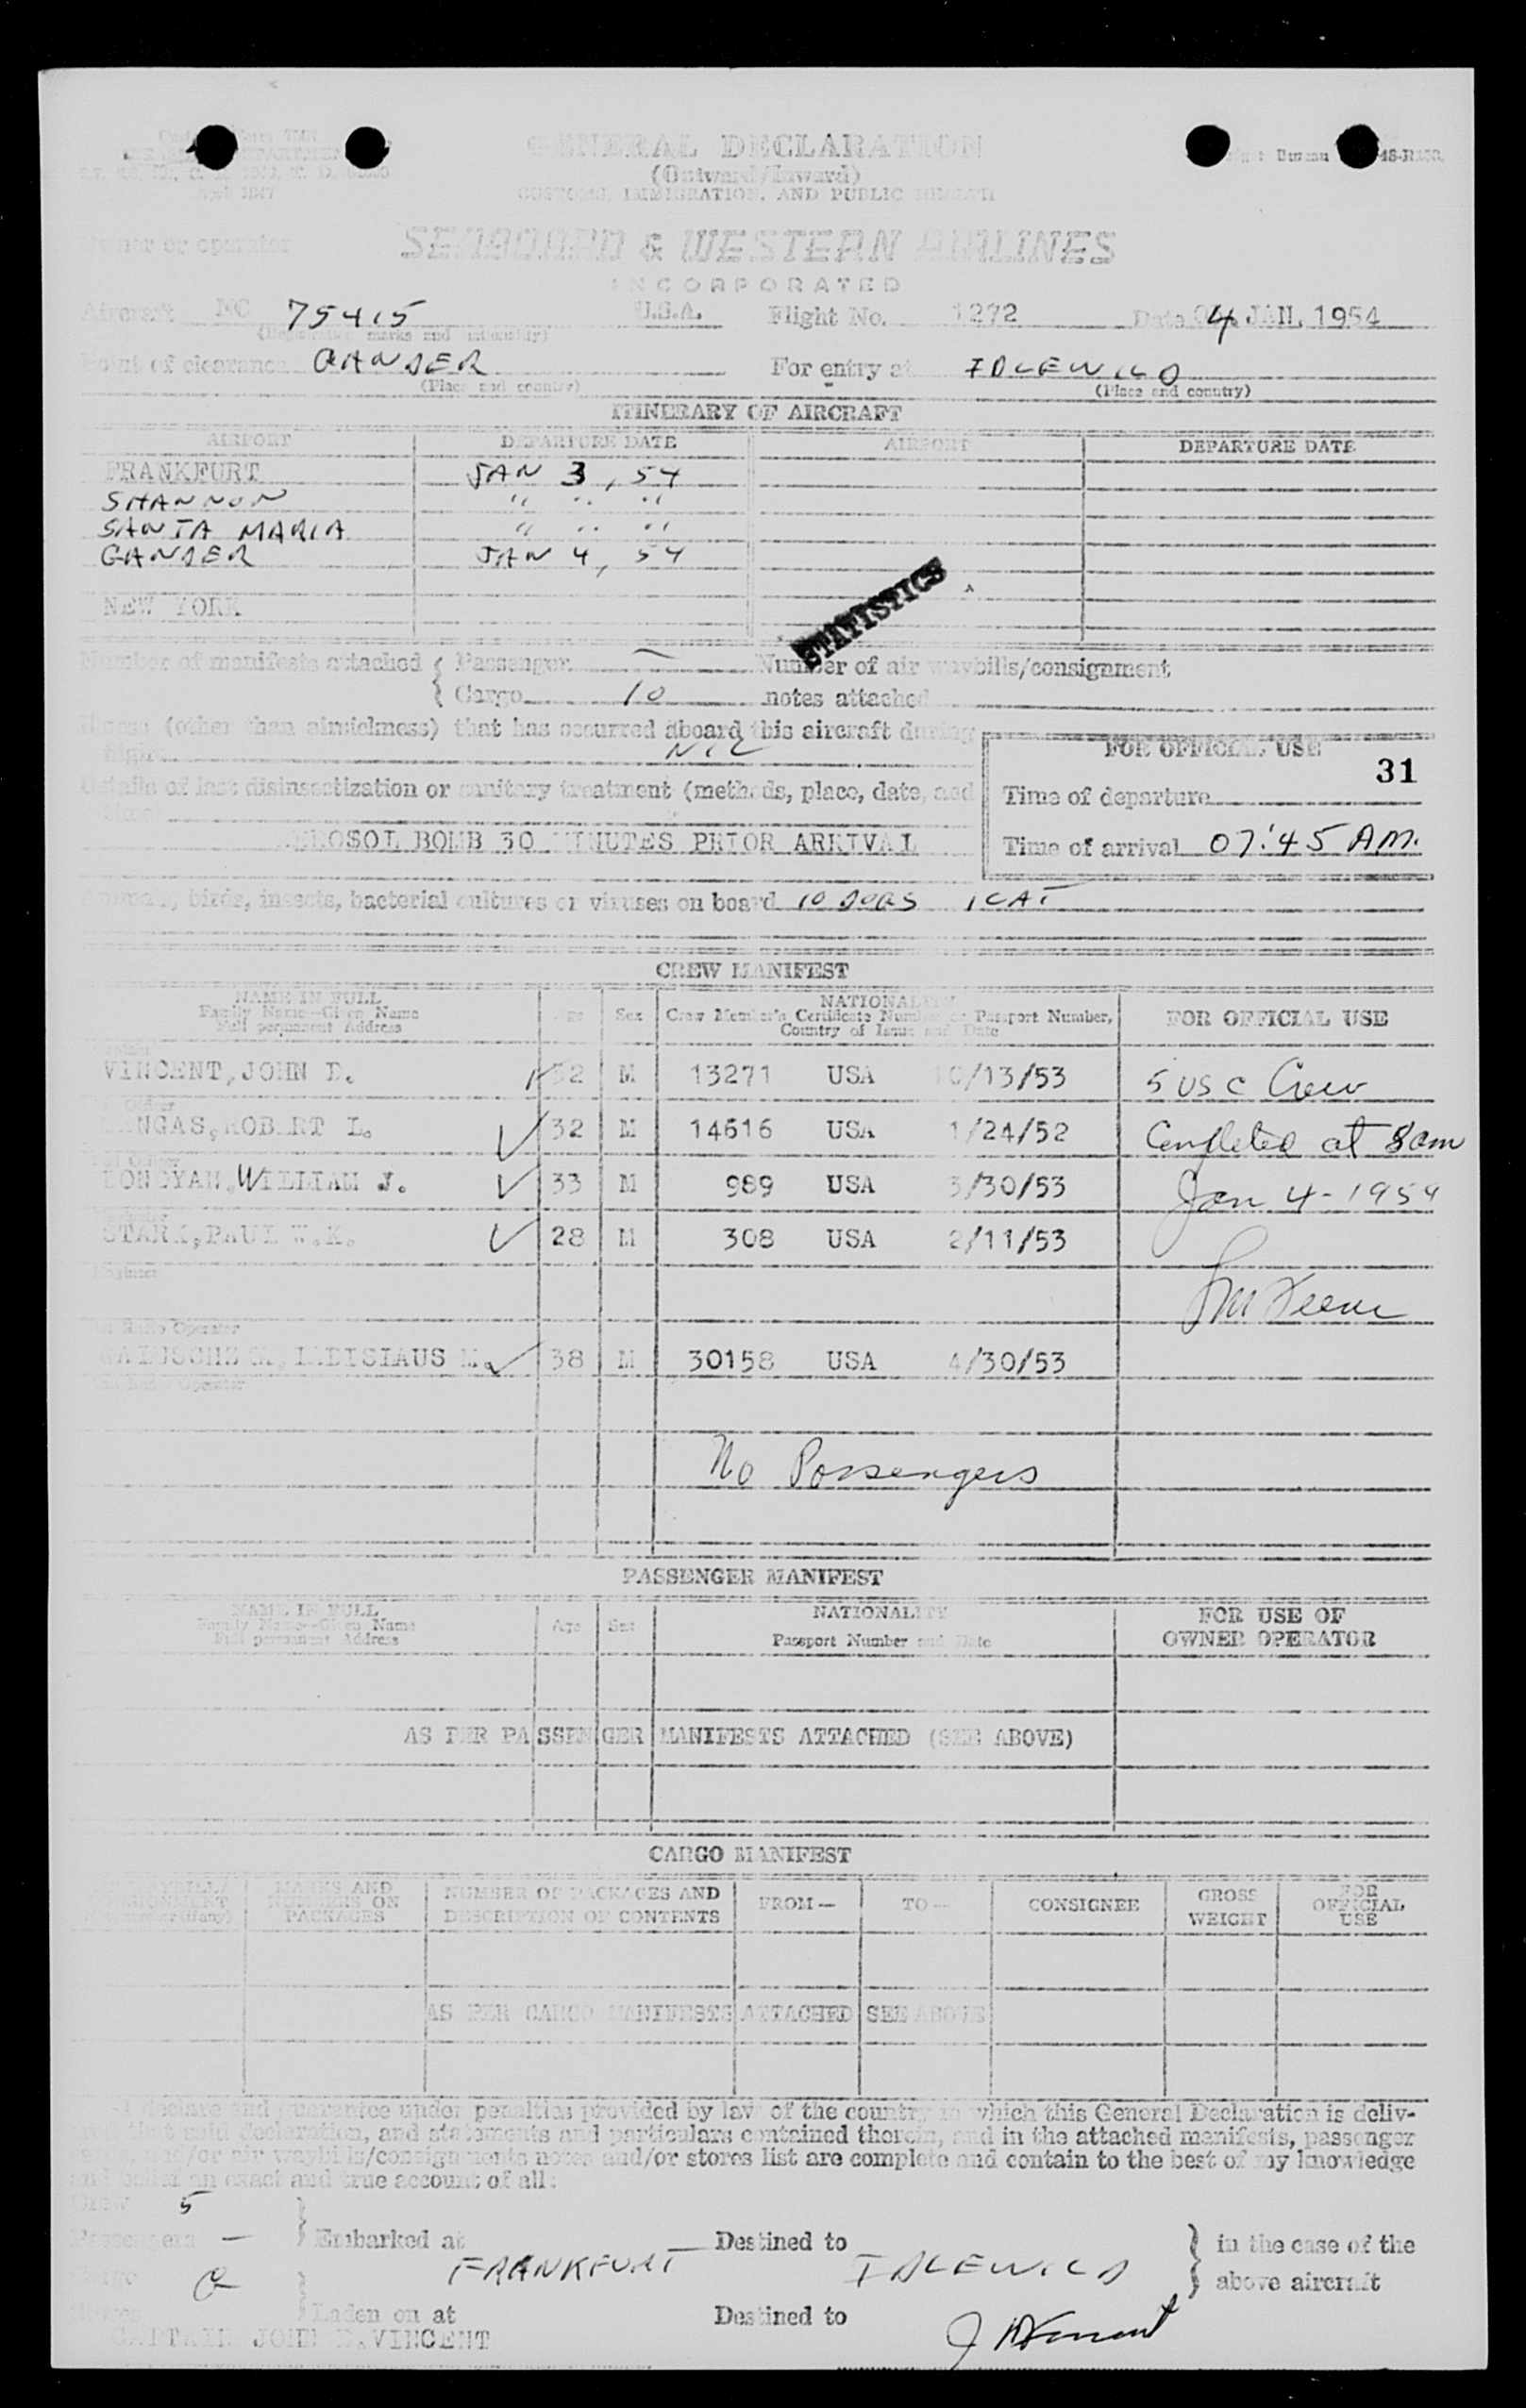 GENERAL DECLARATION
(Outward/Inward)
CUSTOMS, IMMIGRATION, AND PUBLIC HEALTH
April 1947
Owner or operator SEABOARD & WESTERN AIRLINES
INCORPORATED
Aircraft NC 75415 U.S.A. Flight No. 1272 Date 4 JAN. 1954
(Registration marks and nationality)
Point of clearance GANDER For entry at IDLEWILD
(Place and country) (Place and country)
ITINERARY OF AIRCRAFT
AIRPORT DEPARTURE DATE AIRPORT DEPARTURE DATE
FRANKFURT JAN 3, 54
SHANNON " " "
SANTA MARIA " " "
GANDER JAN 4, 54
NEW YORK
STATISTICS
Number of manifests attached { Passenger — Number of air waybills/consignment
{ Cargo 10 notes attached
Illness (other than airsickness) that has occurred aboard this aircraft during
flight NIL
FOR OFFICIAL USE
31
Details of last disinsectization or sanitary treatment (methods, place, date, and
time)
Time of departure
AEROSOL BOMB 30 MINUTES PRIOR ARRIVAL
Time of arrival 07:45 AM.
Animals, birds, insects, bacterial cultures or viruses on board 10 DOGS 1 CAT
CREW MANIFEST
NAME IN FULL
Family Name—Given Name
Full permanent Address
Age Sex
NATIONALITY
Crew Member's Certificate Number or Passport Number,
Country of Issue and Date
FOR OFFICIAL USE
VINCENT, JOHN D. 32 M 13271 USA 10/13/53 5 USC Crew
ROBERT L. 32 M 14616 USA 1/24/52 Completed at 8am
WILLIAM J. 33 M 989 USA 3/30/53 Jan 4-1954
STARK, PAUL W.K. 28 M 308 USA 2/11/53
Engineer
Radio Operator
M. 38 M 30158 USA 4/30/53
Radio Operator
No Passengers
PASSENGER MANIFEST
NAME IN FULL
Family Name—Given Name
Full permanent Address
Age Sex
NATIONALITY
Passport Number and Date
FOR USE OF
OWNER OPERATOR
AS PER PASSENGER MANIFESTS ATTACHED (SEE ABOVE)
CARGO MANIFEST
MARKS AND
NUMBERS ON
PACKAGES
NUMBER OF PACKAGES AND
DESCRIPTION OF CONTENTS
FROM— TO— CONSIGNEE
GROSS
WEIGHT
FOR
OFFICIAL
USE
AS PER CARGO MANIFESTS ATTACHED SEE ABOVE
I declare and guarantee under penalties provided by law of the country in which this General Declaration is deliv-
said declaration, and statements and particulars contained therein, and in the attached manifests, passenger
and/or air waybills/consignments notes and/or stores list are complete and contain to the best of my knowledge
and belief an exact and true account of all:
Crew 5
Passengers — } Embarked at FRANKFURT Destined to IDLEWILD } in the case of the
Cargo
above aircraft
Stores } Laden on at Destined to
CAPTAIN JOHN D. VINCENT
J D Vincent